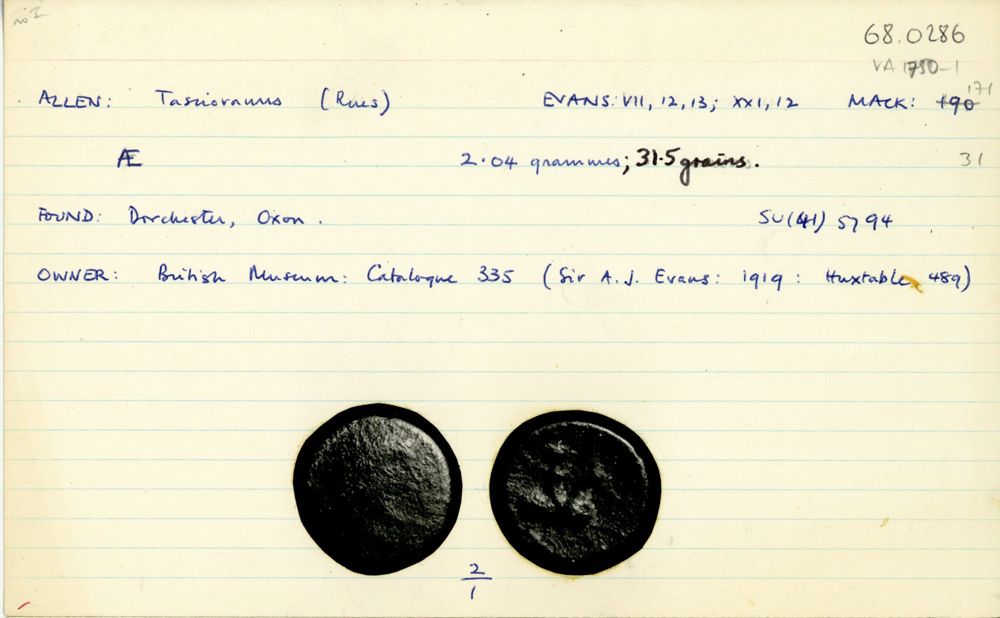 68.0286
VA 1750-1
ALLEN: Tasciovanus (Rues) EVANS: VII, 12, 13; XXI, 12 MACK: 190 171
Æ 2.04 grammes; 31.5 grains. 31
FOUND: Dorchester, Oxon. SU(41) 5794
OWNER: British Museum: Catalogue 335 (Sir A.J. Evans: 1919: Huxtable 489)
2
1